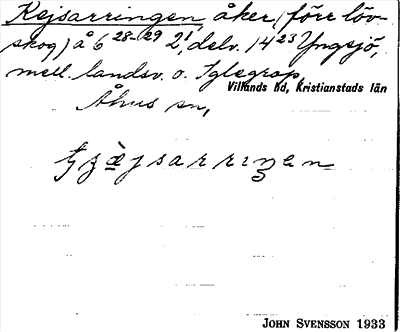 Kejsarringen, åker (förr löv-
skog) å 6²⁸⁻²⁹ 2¹, delv. 14²³ Yngsjö,
mell. landsv. o. Iglegrop,
Villands hd, Kristianstads län
Åhus sn,
JOHN SVENSSON 1933